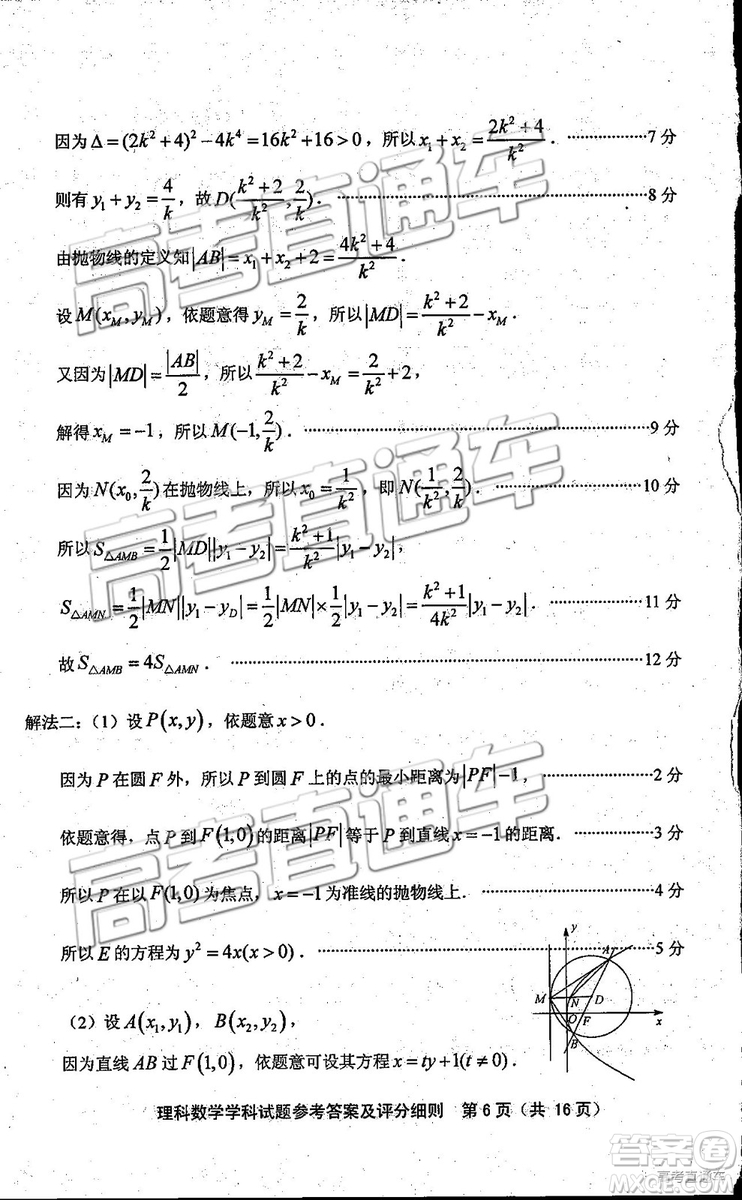 因为Δ=(2k²+4)²−4k⁴=16k²+16>0，所以x₁+x₂=\frac{2k²+4}{k²}．⋯⋯⋯⋯7分
则有y₁+y₂=\frac{4}{k}，故D(\frac{k²+2}{k²},\frac{2}{k})．⋯⋯⋯⋯8分
由抛物线的定义知|AB|=x₁+x₂+2=\frac{4k²+4}{k²}．
设M(x_M,y_M)，依题意得y_M=\frac{2}{k}，所以|MD|=\frac{k²+2}{k²}−x_M．
又因为|MD|=\frac{|AB|}{2}，所以\frac{k²+2}{k²}−x_M=\frac{2}{k²}+2，
解得x_M=−1，所以M(−1,\frac{2}{k})．⋯⋯⋯⋯9分
因为N(x₀,\frac{2}{k})在抛物线上，所以x₀=\frac{1}{k²}，即N(\frac{1}{k²},\frac{2}{k})．⋯⋯⋯⋯10分
所以S_{△AMB}=\frac{1}{2}|MD||y₁−y₂|=\frac{k²+1}{k²}|y₁−y₂|，
S_{△AMN}=\frac{1}{2}|MN||y₁−y_D|=\frac{1}{2}|MN|×\frac{1}{2}|y₁−y₂|=\frac{k²+1}{4k²}|y₁−y₂|．⋯⋯⋯⋯11分
故S_{△AMB}=4S_{△AMN}．⋯⋯⋯⋯12分
解法二：（1）设P(x,y)，依题意x>0．
因为P在圆F外，所以P到圆F上的点的最小距离为|PF|−1，⋯⋯⋯⋯2分
依题意得，点P到F(1,0)的距离|PF|等于P到直线x=−1的距离．⋯⋯⋯⋯3分
所以P在以F(1,0)为焦点，x=−1为准线的抛物线上．⋯⋯⋯⋯4分
所以E的方程为y²=4x(x>0)．⋯⋯⋯⋯5分
y
A
M
N
D
O
F
x
B
（2）设A(x₁,y₁)，B(x₂,y₂)，
因为直线AB过F(1,0)，依题意可设其方程x=ty+1(t≠0)．
理科数学学科试题参考答案及评分细则 第6页（共 16页）
高考直通车
高考直通车
高考直通车
答案圈
高考直通车
MXQE.COM